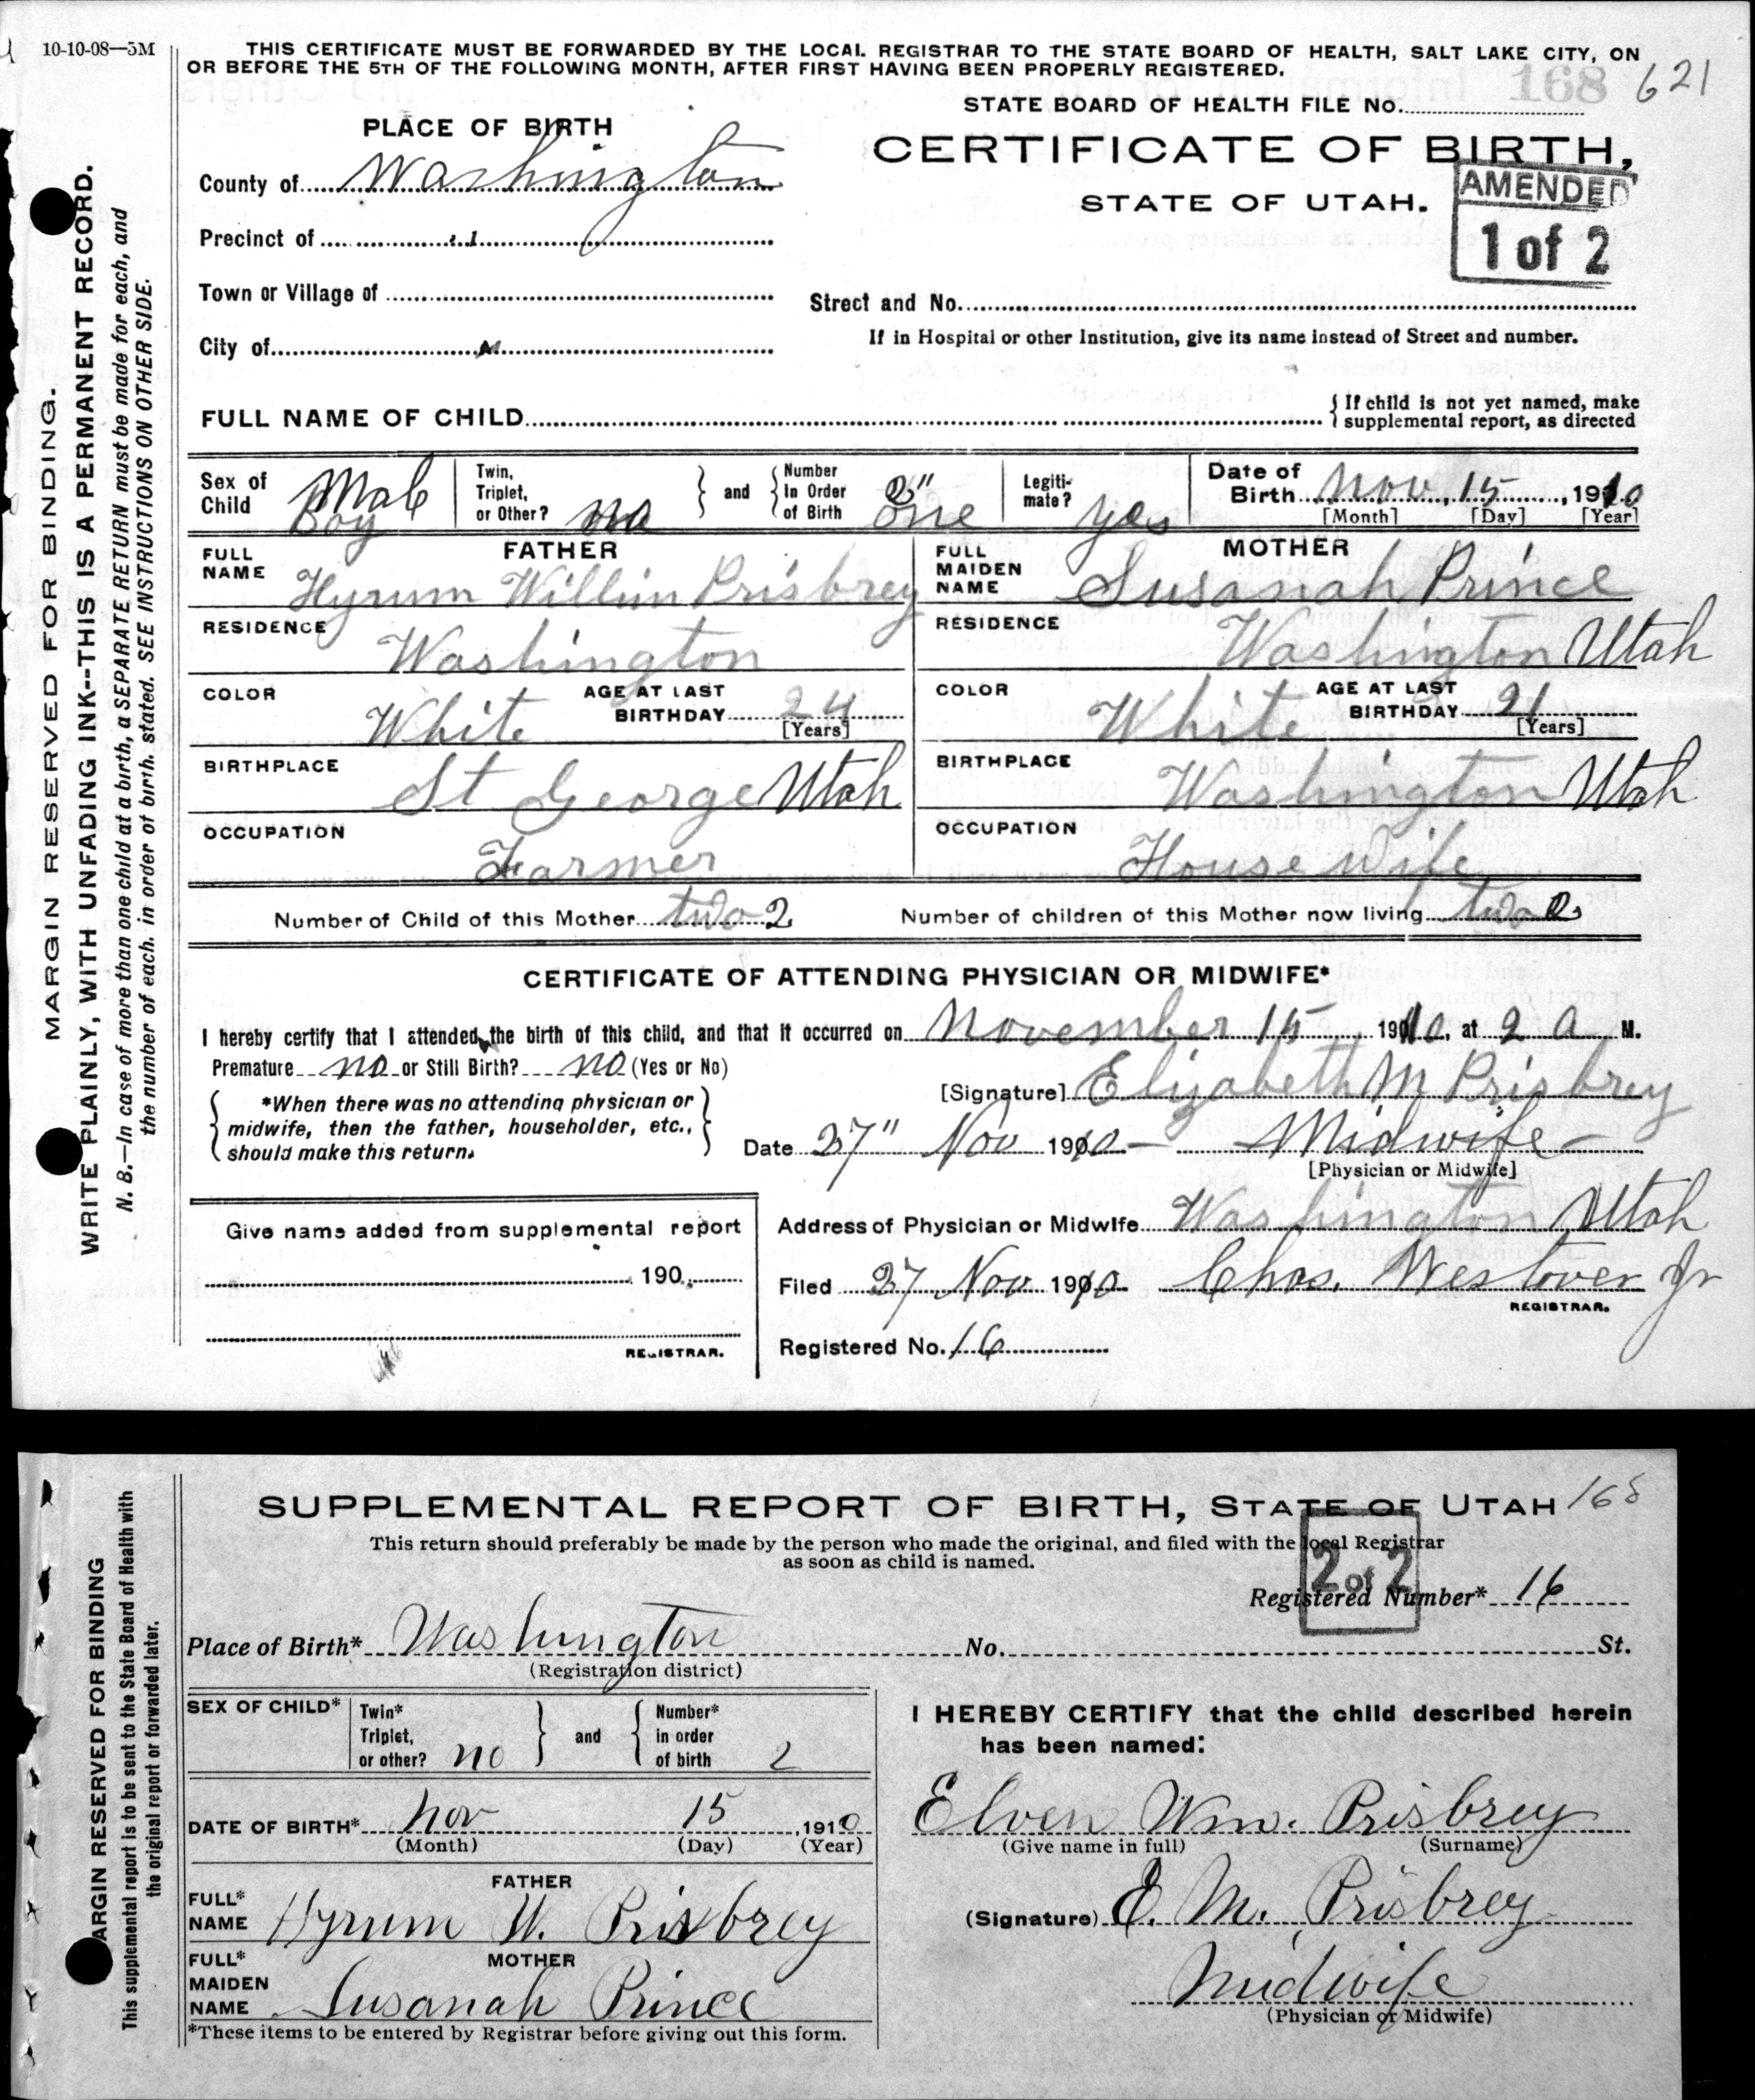 10-10-08—5M
THIS CERTIFICATE MUST BE FORWARDED BY THE LOCAL REGISTRAR TO THE STATE BOARD OF HEALTH, SALT LAKE CITY, ON
OR BEFORE THE 5TH OF THE FOLLOWING MONTH, AFTER FIRST HAVING BEEN PROPERLY REGISTERED.
168 621
STATE BOARD OF HEALTH FILE No.
PLACE OF BIRTH
CERTIFICATE OF BIRTH,
County of Washington
STATE OF UTAH.
AMENDED
1 of 2
Precinct of "
Town or Village of
Street and No.
City of
If in Hospital or other Institution, give its name instead of Street and number.
FULL NAME OF CHILD
If child is not yet named, make
supplemental report, as directed
Sex of Child Male Boy
Twin, Triplet, or Other? no
and
Number In Order of Birth 2" one
Legiti-mate? yes
Date of Birth Nov, 15, 1910
[Month] [Day] [Year]
FATHER
FULL NAME Hyrum Willim Prisbrey
MOTHER
FULL MAIDEN NAME Susanah Prince
RESIDENCE Washington
RESIDENCE Washington Utah
COLOR White AGE AT LAST BIRTHDAY 24 [Years]
COLOR White AGE AT LAST BIRTHDAY 21 [Years]
BIRTHPLACE St George Utah
BIRTHPLACE Washington Utah
OCCUPATION Farmer
OCCUPATION House Wife
Number of Child of this Mother two 2
Number of children of this Mother now living two 2
CERTIFICATE OF ATTENDING PHYSICIAN OR MIDWIFE*
I hereby certify that I attended the birth of this child, and that it occurred on November 15, 1910, at 2 A M.
Premature no or Still Birth? no (Yes or No)
[Signature] Elizabeth M Prisbrey
*When there was no attending physician or
midwife, then the father, householder, etc.,
should make this return.
Date 27" Nov 1910 — Midwife —
[Physician or Midwife]
Give name added from supplemental report
190
REGISTRAR.
Address of Physician or Midwife Washington Utah
Filed 27 Nov 1910 Chas. Westover Jr
REGISTRAR.
Registered No. 16
MARGIN RESERVED FOR BINDING.
WRITE PLAINLY, WITH UNFADING INK--THIS IS A PERMANENT RECORD.
N. B.—In case of more than one child at a birth, a SEPARATE RETURN must be made for each, and
the number of each, in order of birth, stated. SEE INSTRUCTIONS ON OTHER SIDE.
SUPPLEMENTAL REPORT OF BIRTH, STATE OF UTAH 168
This return should preferably be made by the person who made the original, and filed with the local Registrar
as soon as child is named.
2 of 2
Registered Number* 16
Place of Birth* Washington No. St.
(Registration district)
SEX OF CHILD*
Twin* Triplet, or other? no
and
Number* in order of birth 2
DATE OF BIRTH* Nov 15, 1910
(Month) (Day) (Year)
FATHER
FULL* NAME Hyrum W. Prisbrey
MOTHER
FULL* MAIDEN NAME Susanah Prince
*These items to be entered by Registrar before giving out this form.
I HEREBY CERTIFY that the child described herein
has been named:
Elven Wm. Prisbrey
(Give name in full) (Surname)
(Signature) E. M. Prisbrey
Midwife
(Physician or Midwife)
MARGIN RESERVED FOR BINDING
This supplemental report is to be sent to the State Board of Health with
the original report or forwarded later.